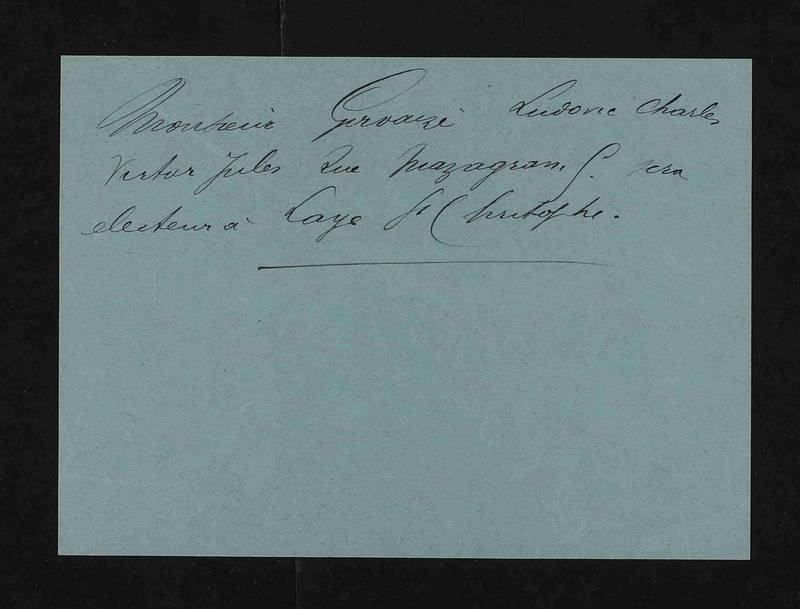 Monsieur Gervaize Ludovic Charles
Victor Jules Rue Mazagran 5. sera
électeur à Laye St Christophe.